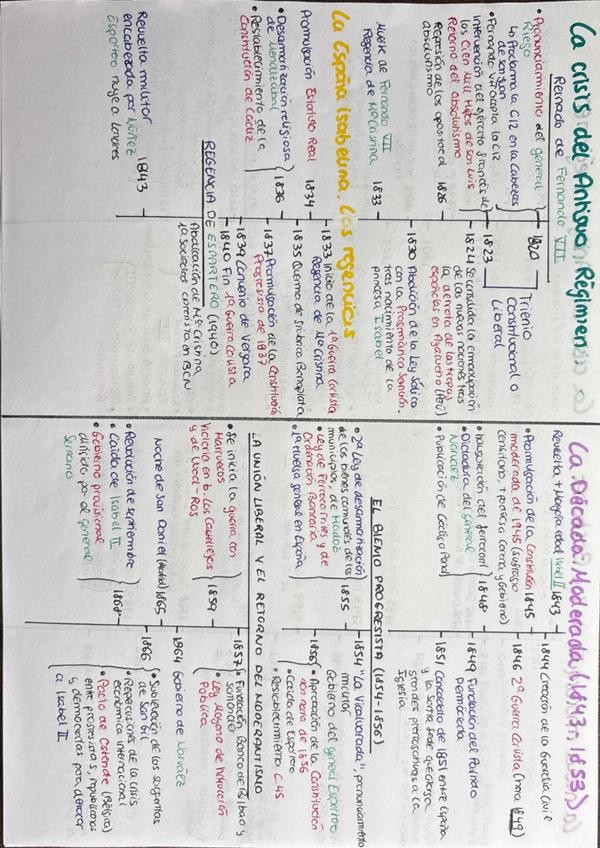 La crisis del Antiguo Régimen
Reinado de Fernando VII
• Pronunciamiento del general
Riego
↳ Proclama la C12 en la Cabezas
de San Juan
• Fernando VII acepta la C12
1820
Trienio
Constitucional o
Liberal
Intervención del ejército francés de
los Cien Mil Hijos de San Luis
Retorno del absolutismo
1823
1824 Se consolida la emancipación
de las nuevas naciones tras
la derrota de las tropas
españolas en Ayacucho (Perú)
Represión de los opositores al
absolutismo
1826
1830 Abolición de la Ley Sálica
con la Pragmática Sanción,
tras nacimiento de la
princesa Isabel
Muere de Fernando VII
Regencia de Mª Cristina
1833
La España Isabelina. Las regencias
1833 Inicio de la 1ª Guerra Carlista
Regencia de Mª Cristina
Promulgación Estatuto Real 1834
1835 Quema de fábrica Bonaplata
• Desamortización religiosa
de Mendizábal
• Restablecimiento de la
Constitución de Cádiz
1836
1837 Promulgación de la Constitución
Progresista de 1837
1839 Convenio de Vergara
1840 Fin 1ª Guerra Carlista
REGENCIA DE ESPARTERO (1940)
Abdicación de Mª Cristina
1ª sociedad obrerista en BCN
Revuelta militar
encabezada por Núñez
Espartero huye a Londres
1843
La Década Moderada (1843-1853)
Revuelta + Mayoría edad Isabel II 1843
1844 Creación de la Guardia Civil
• Promulgación de la Constitución
moderada de 1945 (sufragio
censitario, poderes corona y gobierno)
1845
1846 2ª Guerra Carlista (hasta 1849)
• Inauguración del ferrocarril
• Dictadura del general
Narváez
• Publicación de Código Penal
1848
1849 Fundación del Partido
Demócrata
1851 Concordato de 1851 entre España
y la Santa Sede que otorga
grandes prerrogativas a la
Iglesia
EL BIENIO PROGRESISTA (1854-1856)
1854 "La Vicalvarada", pronunciamiento
militar
Gobierno del general Espartero
• 2ª Ley de desamortización
de los bienes comunales de los
municipios, de Madoz
• Ley de Ferrocarriles y de
Ordenación Bancaria
• 1ª Huelga general en España
1855
1856
• Aprobación de la Constitución
non nata de 1856
• Caída de Espartero
• Restablecimiento C-45
LA UNIÓN LIBERAL Y EL RETORNO DEL MODERANTISMO
1857
• Fundación Banco de Bilbao y
Santander
• Ley Moyano de Instrucción
Pública
• Se inicia la guerra con
Marruecos
Victoria en b. Los Castillejos
y de Wad-Ras
1859
1964 Gobierno de Narváez
Noche de San Daniel (Madrid) 1865
1866
• Sublevación de los sargentos
de San Gil
• Repercusiones de la crisis
económica internacional
• Pacto de Ostende (Bélgica)
entre progresistas, republicanos
y demócratas para derrocar
a Isabel II
• Revolución de septiembre
• Caída de Isabel II
• Gobierno provisional
dirigido por el general
Serrano
1868